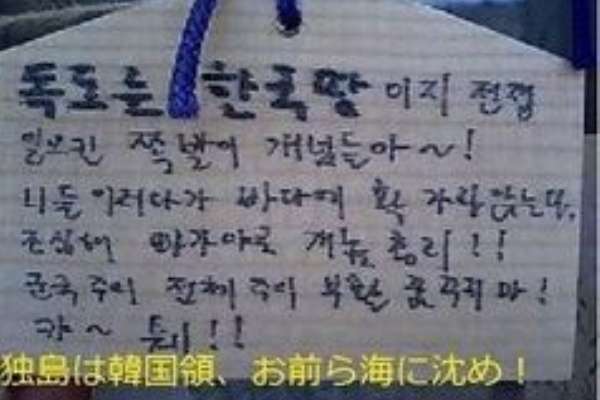 독도는 한국땅 이지
쪽발이 개넘들아~!
니들 이러다가 바다에 확 가랑앉는다,
조심해 총리!!
군국주의 전체주의 부활 꿈꾸지 마!
캬~ 퉤!!
独島は韓国領、お前ら海に沈め!